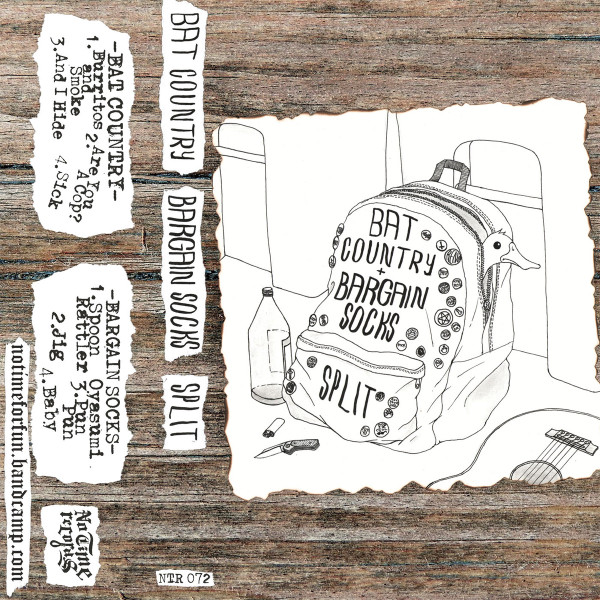 -BAT COUNTRY-
1.Burritos 2.Are You
and A Cop?
Smoke
3.And I Hide 4.Slok
-BARGAIN SOCKS-
1.Spoon Oyasumi
Rattler 3.Pun
Pun
2.Jig
4.Baby
notimeforfun.bandcamp.com
No Time
records
BAT COUNTRY
BARGAIN SOCKS
SPLIT
NTR 072
BAT
COUNTRY
+
BARGAIN
SOCKS
SPLIT